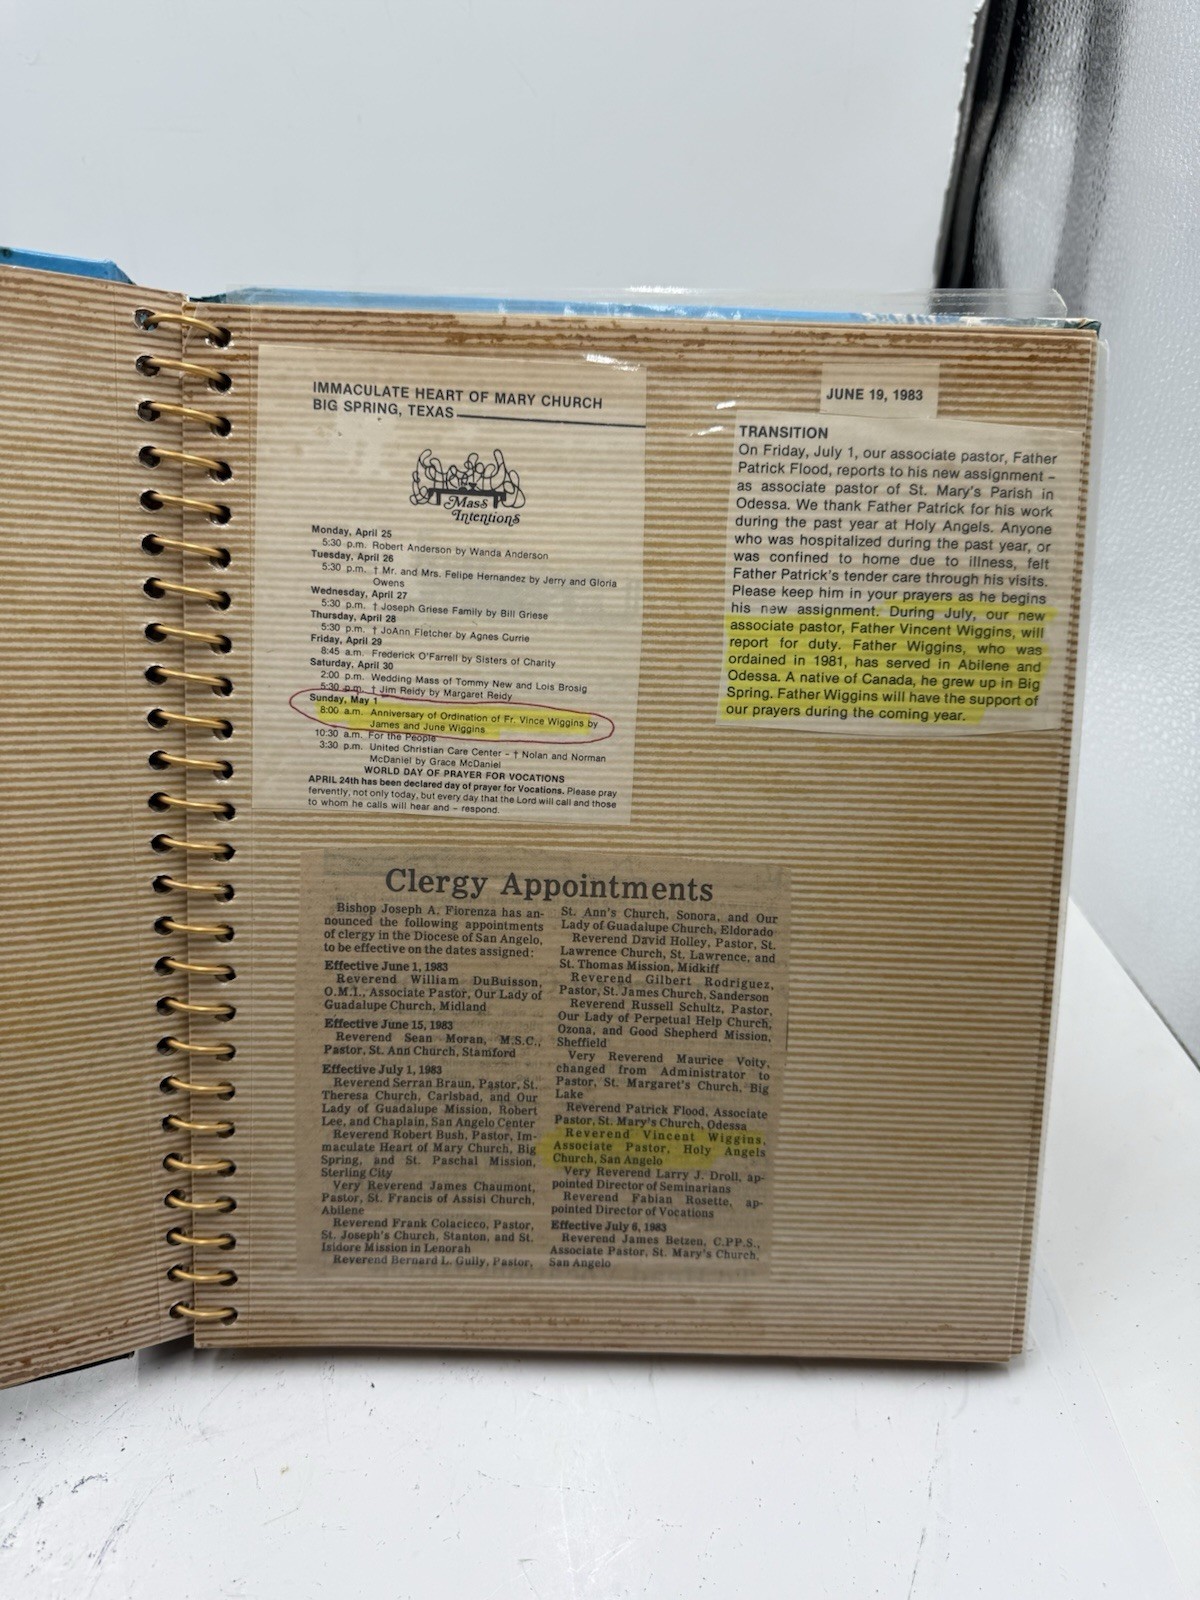 IMMACULATE HEART OF MARY CHURCH
BIG SPRING, TEXAS
Mass
Intentions
Monday, April 25
5:30 p.m. Robert Anderson by Wanda Anderson
Tuesday, April 26
5:30 p.m. † Mr. and Mrs. Felipe Hernandez by Jerry and Gloria
Owens
Wednesday, April 27
5:30 p.m. † Joseph Griese Family by Bill Griese
Thursday, April 28
5:30 p.m. † JoAnn Fletcher by Agnes Currie
Friday, April 29
8:45 a.m. Frederick O'Farrell by Sisters of Charity
Saturday, April 30
2:00 p.m. Wedding Mass of Tommy New and Lois Brosig
5:30 p.m. † Jim Reidy by Margaret Reidy
Sunday, May 1
8:00 a.m. Anniversary of Ordination of Fr. Vince Wiggins by
James and June Wiggins.
10:30 a.m. For the People
3:30 p.m. United Christian Care Center - † Nolan and Norman
McDaniel by Grace McDaniel
WORLD DAY OF PRAYER FOR VOCATIONS
APRIL 24th has been declared day of prayer for Vocations. Please pray
fervently, not only today, but every day that the Lord will call and those
to whom he calls will hear and – respond.
JUNE 19, 1983
TRANSITION
On Friday, July 1, our associate pastor, Father
Patrick Flood, reports to his new assignment –
as associate pastor of St. Mary's Parish in
Odessa. We thank Father Patrick for his work
during the past year at Holy Angels. Anyone
who was hospitalized during the past year, or
was confined to home due to illness, felt
Father Patrick's tender care through his visits.
Please keep him in your prayers as he begins
his new assignment. During July, our new
associate pastor, Father Vincent Wiggins, will
report for duty. Father Wiggins, who was
ordained in 1981, has served in Abilene and
Odessa. A native of Canada, he grew up in Big
Spring. Father Wiggins will have the support of
our prayers during the coming year.
Clergy Appointments
Bishop Joseph A. Fiorenza has an-
nounced the following appointments
of clergy in the Diocese of San Angelo,
to be effective on the dates assigned:
Effective June 1, 1983
Reverend William DuBuisson,
O.M.I., Associate Pastor, Our Lady of
Guadalupe Church, Midland
Effective June 15, 1983
Reverend Sean Moran, M.S.C.,
Pastor, St. Ann Church, Stamford
Effective July 1, 1983
Reverend Serran Braun, Pastor, St.
Theresa Church, Carlsbad, and Our
Lady of Guadalupe Mission, Robert
Lee, and Chaplain, San Angelo Center
Reverend Robert Bush, Pastor, Im-
maculate Heart of Mary Church, Big
Spring, and St. Paschal Mission,
Sterling City
Very Reverend James Chaumont,
Pastor, St. Francis of Assisi Church,
Abilene
Reverend Frank Colacicco, Pastor,
St. Joseph's Church, Stanton, and St.
Isidore Mission in Lenorah
Reverend Bernard L. Gully, Pastor,
St. Ann's Church, Sonora, and Our
Lady of Guadalupe Church, Eldorado
Reverend David Holley, Pastor, St.
Lawrence Church, St. Lawrence, and
St. Thomas Mission, Midkiff
Reverend Gilbert Rodriguez,
Pastor, St. James Church, Sanderson
Reverend Russell Schultz, Pastor,
Our Lady of Perpetual Help Church,
Ozona, and Good Shepherd Mission,
Sheffield
Very Reverend Maurice Voity,
changed from Administrator to
Pastor, St. Margaret's Church, Big
Lake
Reverend Patrick Flood, Associate
Pastor, St. Mary's Church, Odessa
Reverend Vincent Wiggins,
Associate Pastor, Holy Angels
Church, San Angelo
Very Reverend Larry J. Droll, ap-
pointed Director of Seminarians
Reverend Fabian Rosette, ap-
pointed Director of Vocations
Effective July 6, 1983
Reverend James Betzen, C.PP.S.,
Associate Pastor, St. Mary's Church,
San Angelo